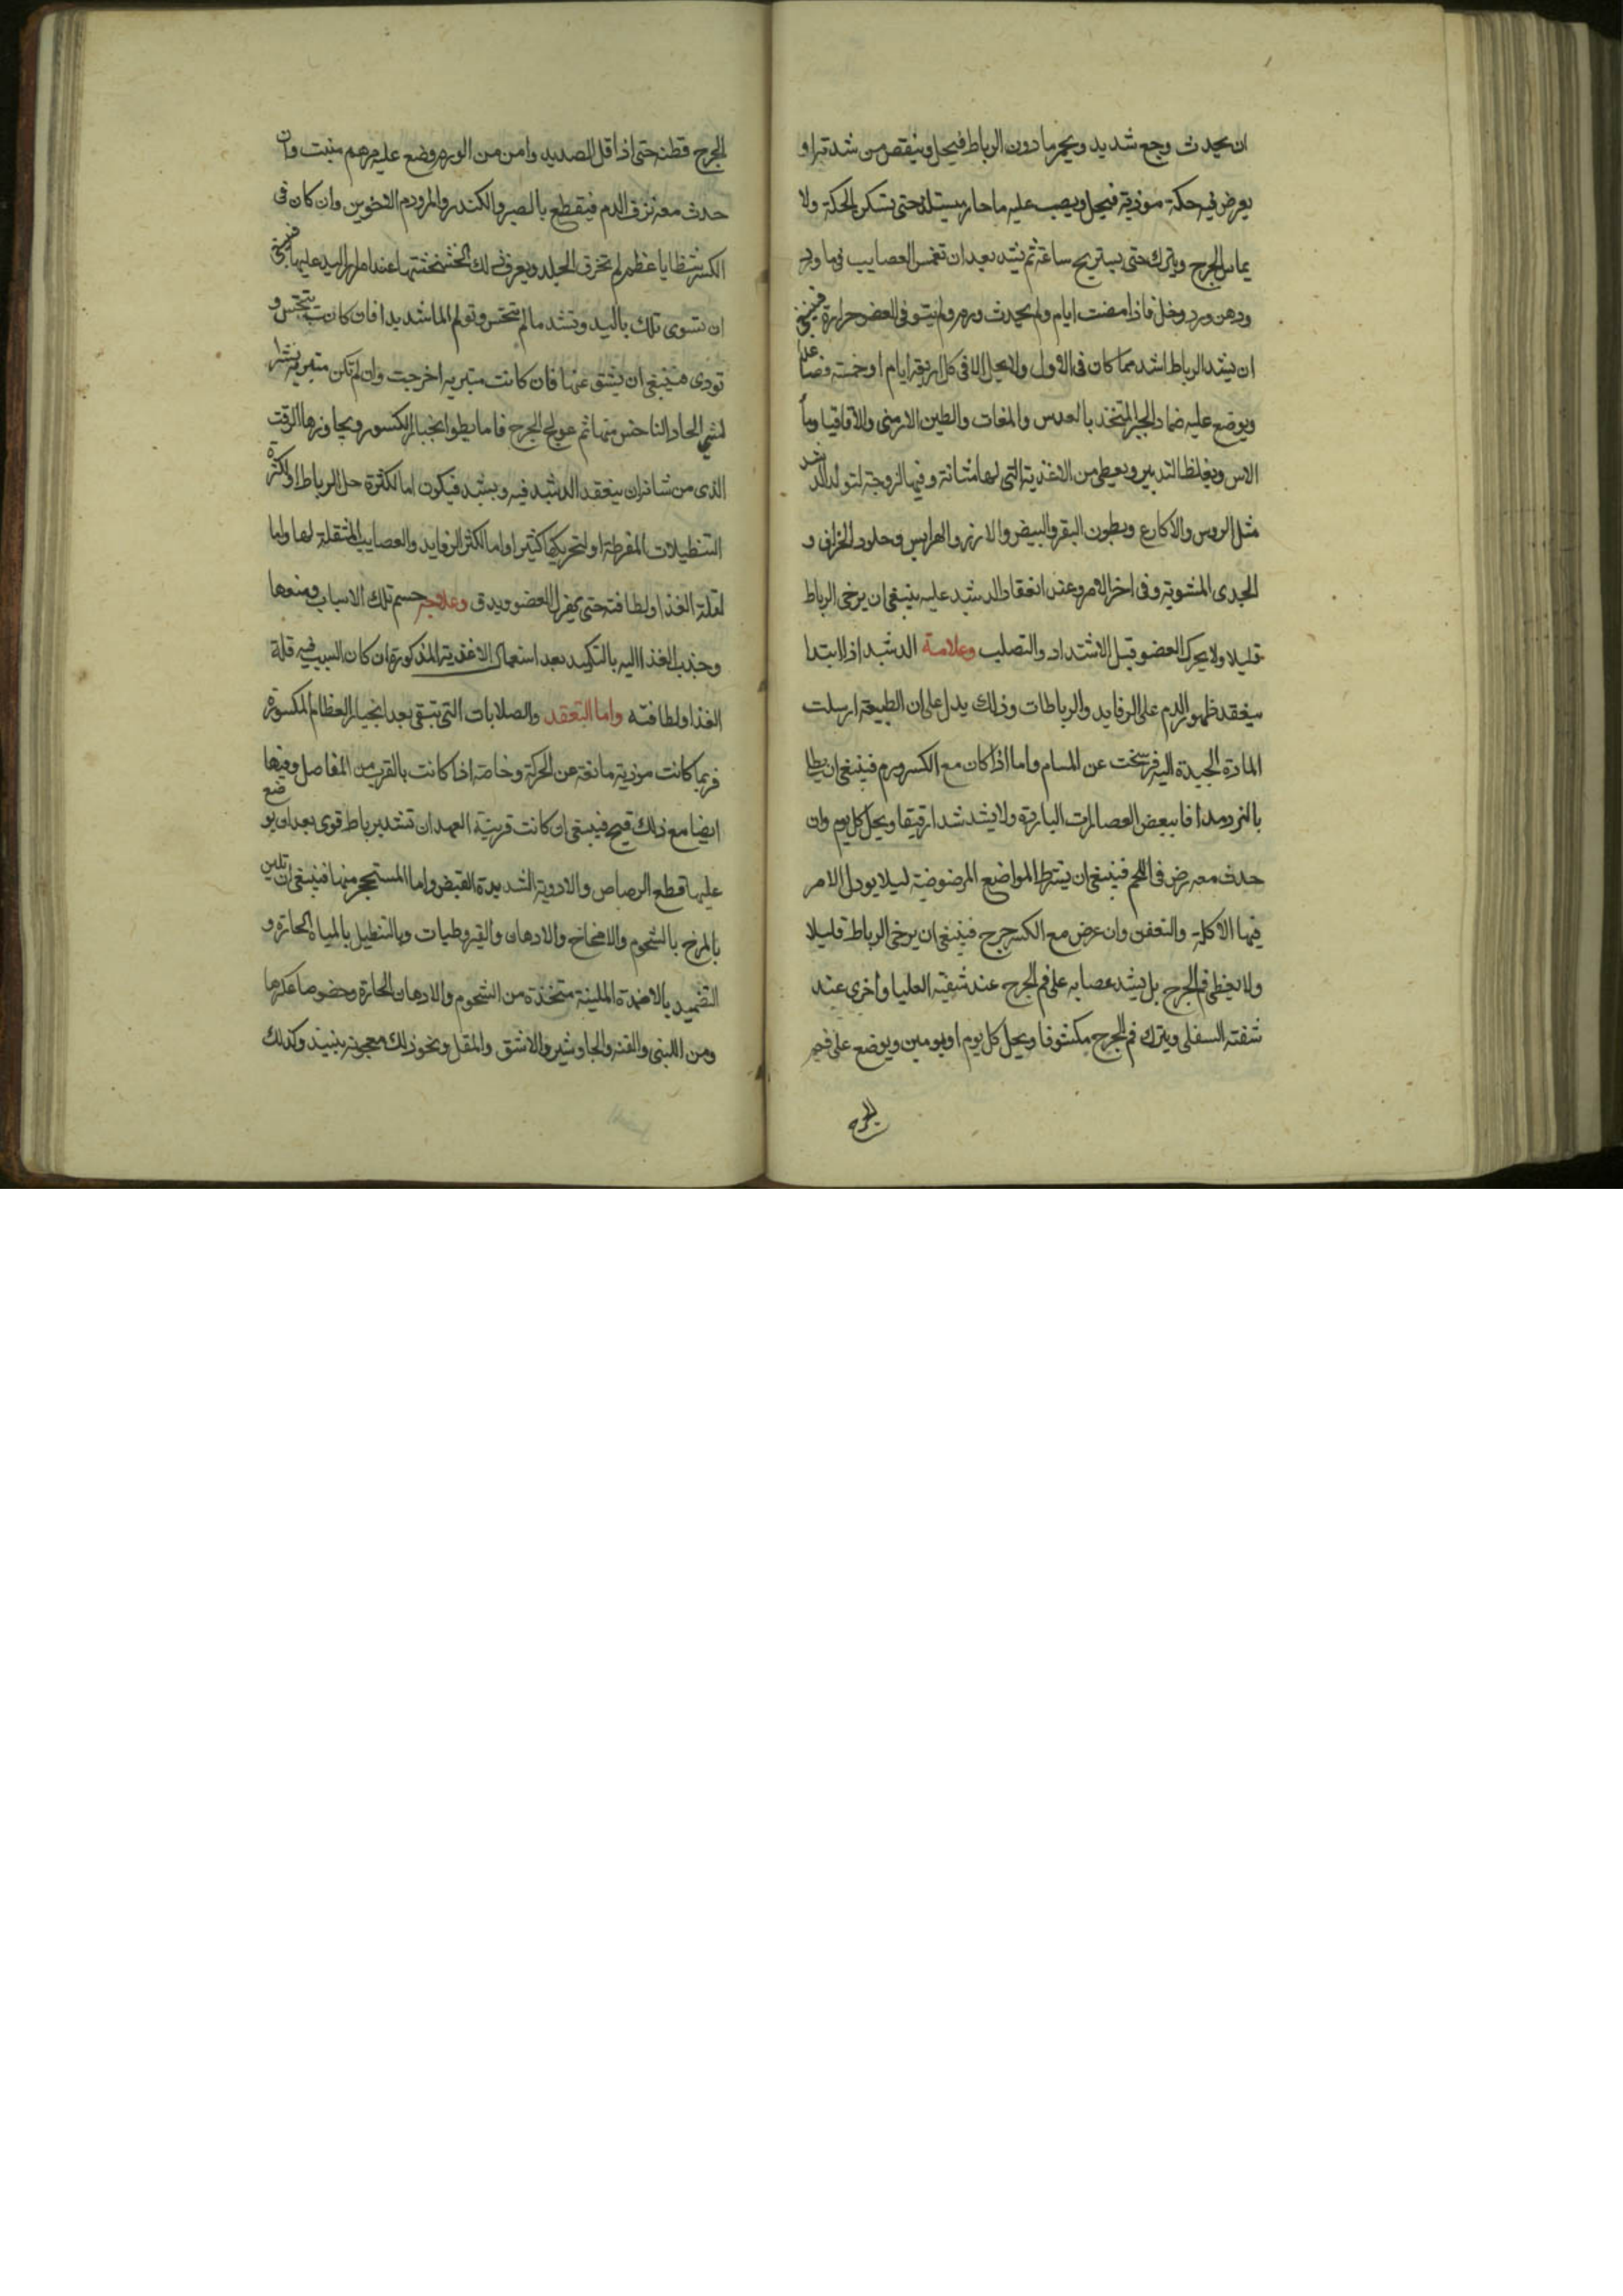 ان يحدث وجع شديد ويحمر ما دون الرباط فيحل وينقص من شدته او
يعرض فيه حكة موذية فيحل ويصب عليه ما حار يستلذ حتى تسكن الحكة ولا
يماس الجرح ويترك حتى يستريح ساعة ثم يشد بعد ان تغمس العصايب في ماورد
ودهن ورد وخل فاذا مضت ايام ولم يحدث ورم ولم يبق في العضو حرارة فينبغي
ان يشد الرباط اشد مما كان في الاول ولا يحل الا في كل اربعة ايام او خمسة فصاعدا
ويوضع عليه ضماد الجبر المتخذ بالعدس والمغاث والطين الارمني والاقاقيا وما
الاس ويغلظ التدبير ويعطى من الاغذية التي لها متانة وفيها لزوجة لتولد الدشبد
مثل الروس والاكارع وبطون البقر والبيض والارز والهرايس وجلود الخراف و
الجدى المشوية وفى اخر الامر وعند انعقاد الدشبد عليه ينبغى ان يرخى الرباط
قليلا ولا يحرك العضو قبل الاشتداد والتصليب وعلامة الدشبد اذا ابتدا
ينعقد ظهور الدم على الرفايد والرباطات وذلك يدل على ان الطبيعة ارسلت
المادة الجيدة اليه فرشحت عن المسام واما اذا كان مع الكسر ورم فينبغى ان يطلا
بالنردمدافا ببعض العصارات الباردة ولا يشد شدا رقيقا ويحل كل يوم وان
حدث معه رض فى اللحم فينبغى ان يشرط المواضع المرضوضة ليلا يودل الامر
فيها الاكلة والتعفن وان عرض مع الكسر جرح فينبغى ان يرخى الرباط قليلا
ولا يغطى فم الجرح بل يشد عصابه على فم الجرح عند شفته العليا واخرى عند
شفته السفلى ويترك فم الجرح مكشوفا ويحل كل يوم او يومين ويوضع على فم
الجرح
الجرح قطنه حتى اذا قل الصديد وامن من الورم وضع عليه مرهم منبت وان
حدث معه نزف الدم فيقطع بالصبر والكندر والمر ودم الاخوين وان كان فى
الكسر شظايا عظم لم تخرق الجلد ويعرف ذلك بخشخشتها عند امرار اليد عليها فينبغى
ان تسوى تلك باليد وتشد ما لم تنخس وتولم الما شديدا فان كانت تنخس و
توذى فينبغى ان يشق عنها فان كانت متبرية اخرجت وان لم تكن متبرية نشر
الشى الحاد الناخس منها ثم عولج الجرح فاما بطو انجبار الكسور ومجاوزها الوقت
الذى من شانه ان ينعقد الدشبد فيه ويشتد فيكون اما لكثرة حل الرباط او لكثرة
التنطيلات المفرطة او لتحريكها كثيرا واما لكثرة الرفايد والعصايب المثقلة لها واما
لقلة الغذا ولطافته حتى يهزل العضو ويدق وعلاجه حسم تلك الاسباب ومنعها
وجذب الغذا اليه بالتكميد بعد استعمال الاغذية المذكورة ان كان السبب فيه قلة
الغذا ولطافته واما التعقد والصلابات التى تبقى بعد انجبار العظام المكسورة
فربما كانت موذية مانعة عن الحركة وخاصة اذا كانت بالقرب من المفاصل وفيها
ايضا مع ذلك قبح فينبغى ان كانت قريبة العهد ان تشد برباط قوى بعد ان يوضع
عليها قطع الرصاص والادوية الشديدة القبض واما المستحجر منها فينبغى ان تلين
بالمرخ بالشحوم والامخاخ والادهان والقيروطيات وبالتنطيل بالمياه الحارة و
التضميد بالاضمدة الملينة متخذة من الشحوم والادهان الحارة وخصوصا عكرها
ومن اللبنى والقنه والجاوشير والاشق والمقل ونحو ذلك معجونه بنبيذ وكذلك